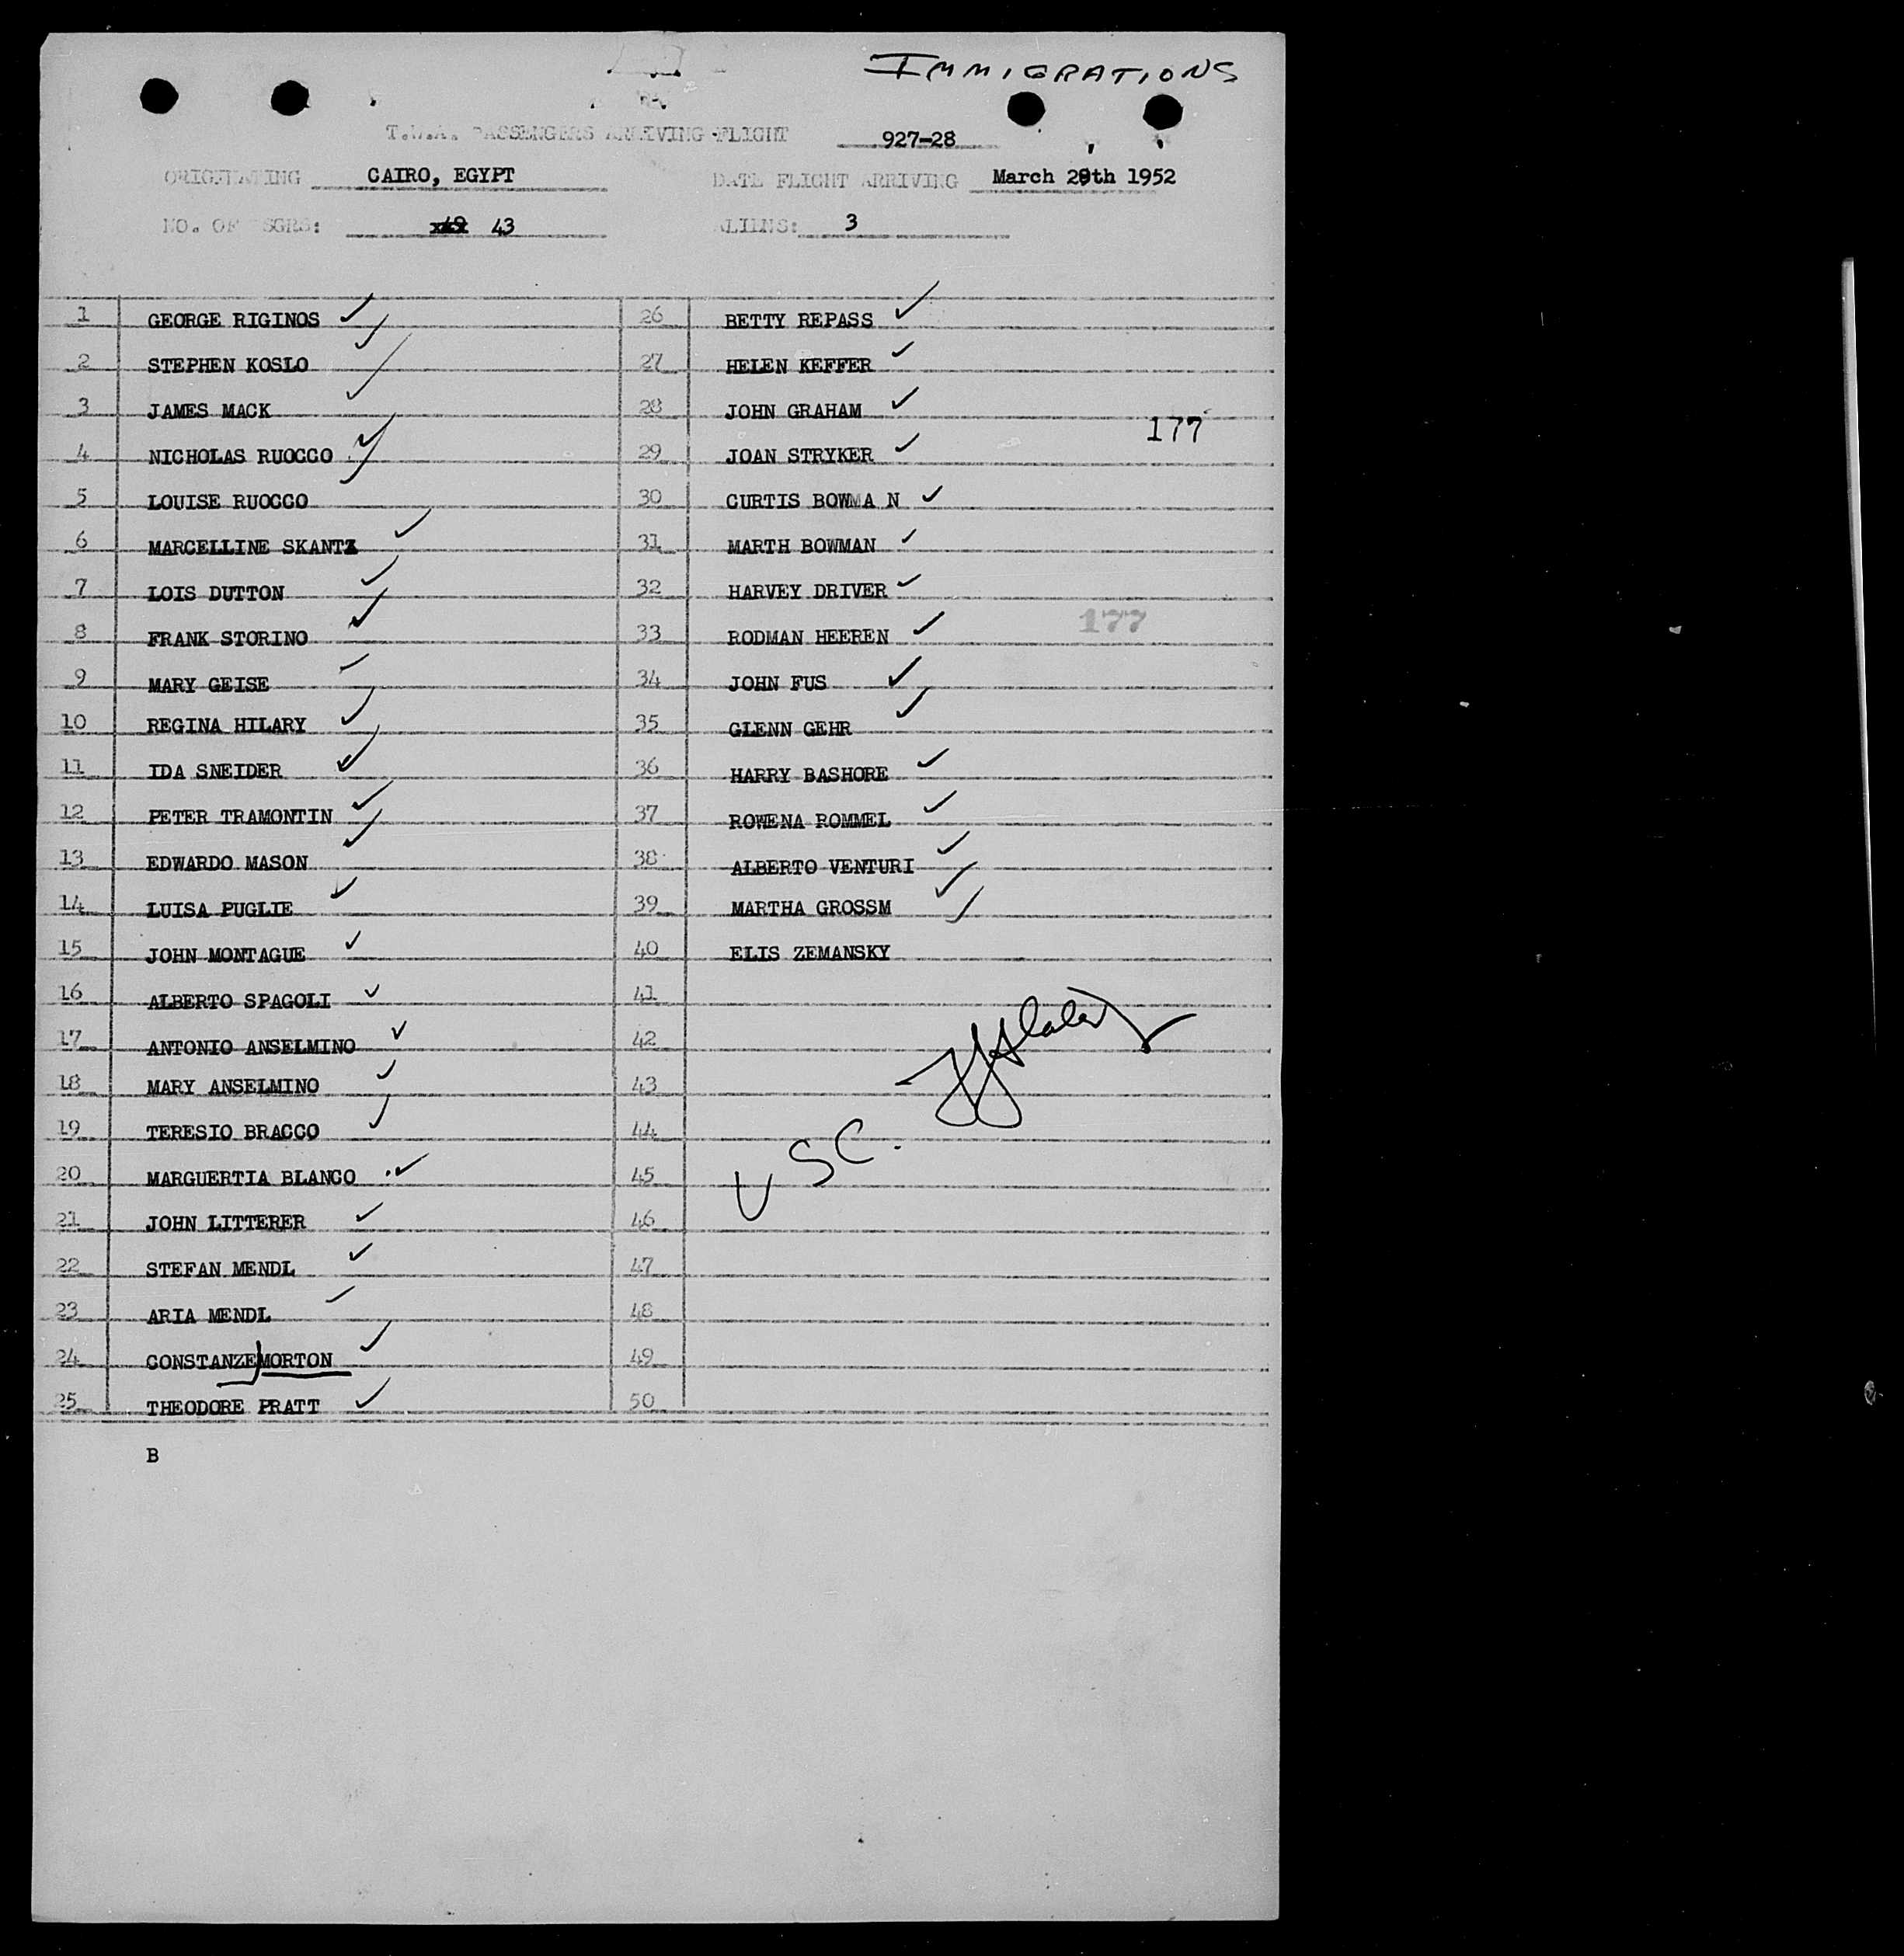 IMMIGRATIONS
T.W.A. PASSENGERS ARRIVING FLIGHT 927-28
ORIGINATING CAIRO, EGYPT DATE FLIGHT ARRIVING March 29th 1952
NO. OF PSGRS: 43 ALIENS: 3
1 GEORGE RIGINOS ✓ 26 BETTY REPASS ✓
2 STEPHEN KOSLO ✓ 27 HELEN KEFFER ✓
3 JAMES MACK ✓ 28 JOHN GRAHAM ✓
177
4 NICHOLAS RUOCCO ✓ 29 JOAN STRYKER ✓
5 LOUISE RUOCCO ✓ 30 CURTIS BOWMA N ✓
6 MARCELLINE SKANTZ ✓ 31 MARTH BOWMAN ✓
7 LOIS DUTTON ✓ 32 HARVEY DRIVER ✓
177
8 FRANK STORINO ✓ 33 RODMAN HEEREN ✓
9 MARY GEISE ✓ 34 JOHN FUS ✓
10 REGINA HILARY ✓ 35 GLENN GEHR ✓
11 IDA SNEIDER ✓ 36 HARRY BASHORE ✓
12 PETER TRAMONTIN ✓ 37 ROWENA ROMMEL ✓
13 EDWARDO MASON ✓ 38 ALBERTO VENTURI ✓
14 LUISA PUGLIE ✓ 39 MARTHA GROSSM ✓
15 JOHN MONTAGUE ✓ 40 ELIS ZEMANSKY ✓
16 ALBERTO SPAGOLI ✓ 41
17 ANTONIO ANSELMINO ✓ 42
18 MARY ANSELMINO ✓ 43
19 TERESIO BRACCO ✓ 44
USC.
20 MARGUERTIA BLANCO ✓ 45
21 JOHN LITTERER ✓ 46
22 STEFAN MENDL ✓ 47
23 ARIA MENDL ✓ 48
24 CONSTANZE MORTON ✓ 49
25 THEODORE PRATT ✓ 50
B